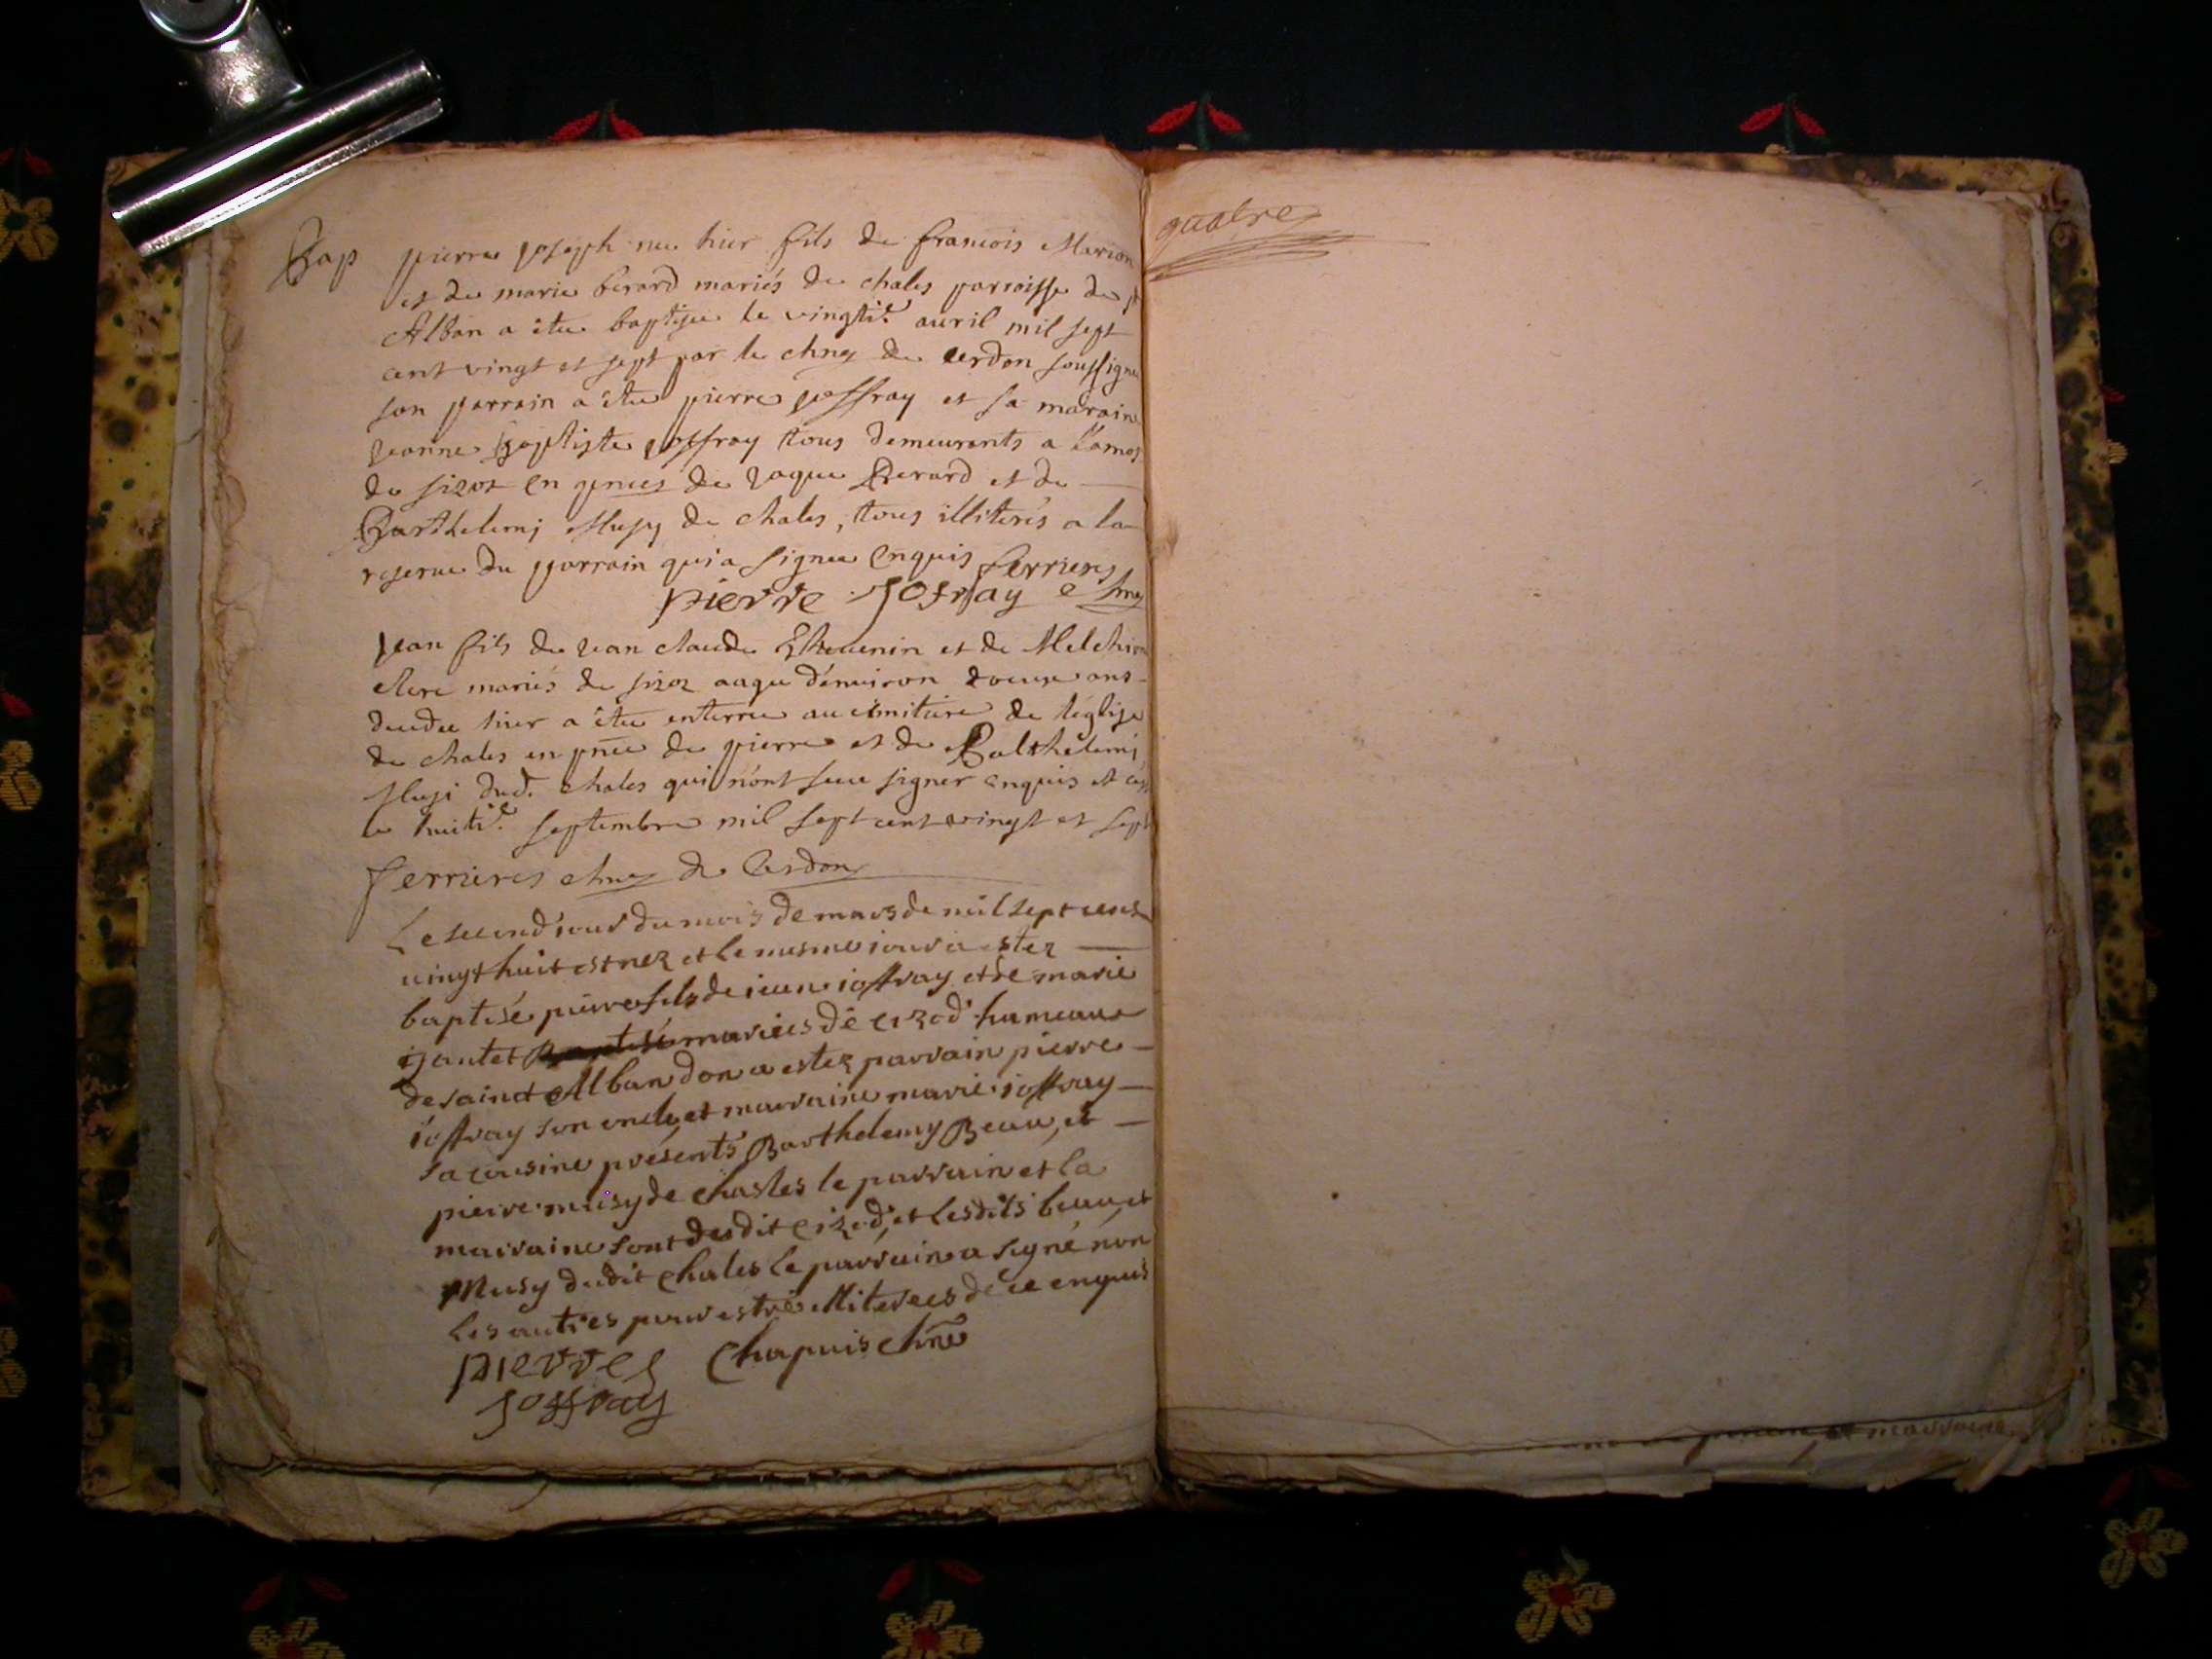 Bap pierre joseph nee hier fils de francois Marion
et de marie berard mariés de chales parroisse de st
Alban a étee baptisee le vingti.e auril mil sept
cent vingt et sept par le chne de cerdon soussigne
son parrain a étee pierre joffray et sa maraine
jeanne Baptiste joffray tous demeurants a
de sizos en pnces de jaque Berard et de
Barthelemj Musy de chales, tous illiterés a la
reserue du parrain qui a signee enquis ferrieres
pierre Jofray chne
jean fils de jean claude Theuenin et de
mariés de sizoz aage d'enuiron ans
decedee hier a étee enterree au cimitiere de l'église
de chales en pnce de pierre et de Balthelemj
Musi dud. chales qui n'ont sceu signer enquis et
le huiti.e septembre mil sept cent vingt et sept
ferrieres chne de Cerdon
Le second iour du mois de mars de mil sept cens
uingt huit est nez et le mesme iour a estez
baptisé pierre fils de iean ioffray et de marie
mariees de cizod hameau
de sainct Alban don a estez parrain pierre
ioffray son oncle et marraine marie ioffray
sa cousine présents Barthelemy Beau, et
pierre musy de chasles le parrain et la
marraine sont dudit cizod, et lesdits beau, et
Musy dudit chales le parrain a signé non
les autres pour estre illiterees de ce enquis
pierre Chapuis chne
Joffray
quatre
et marraine